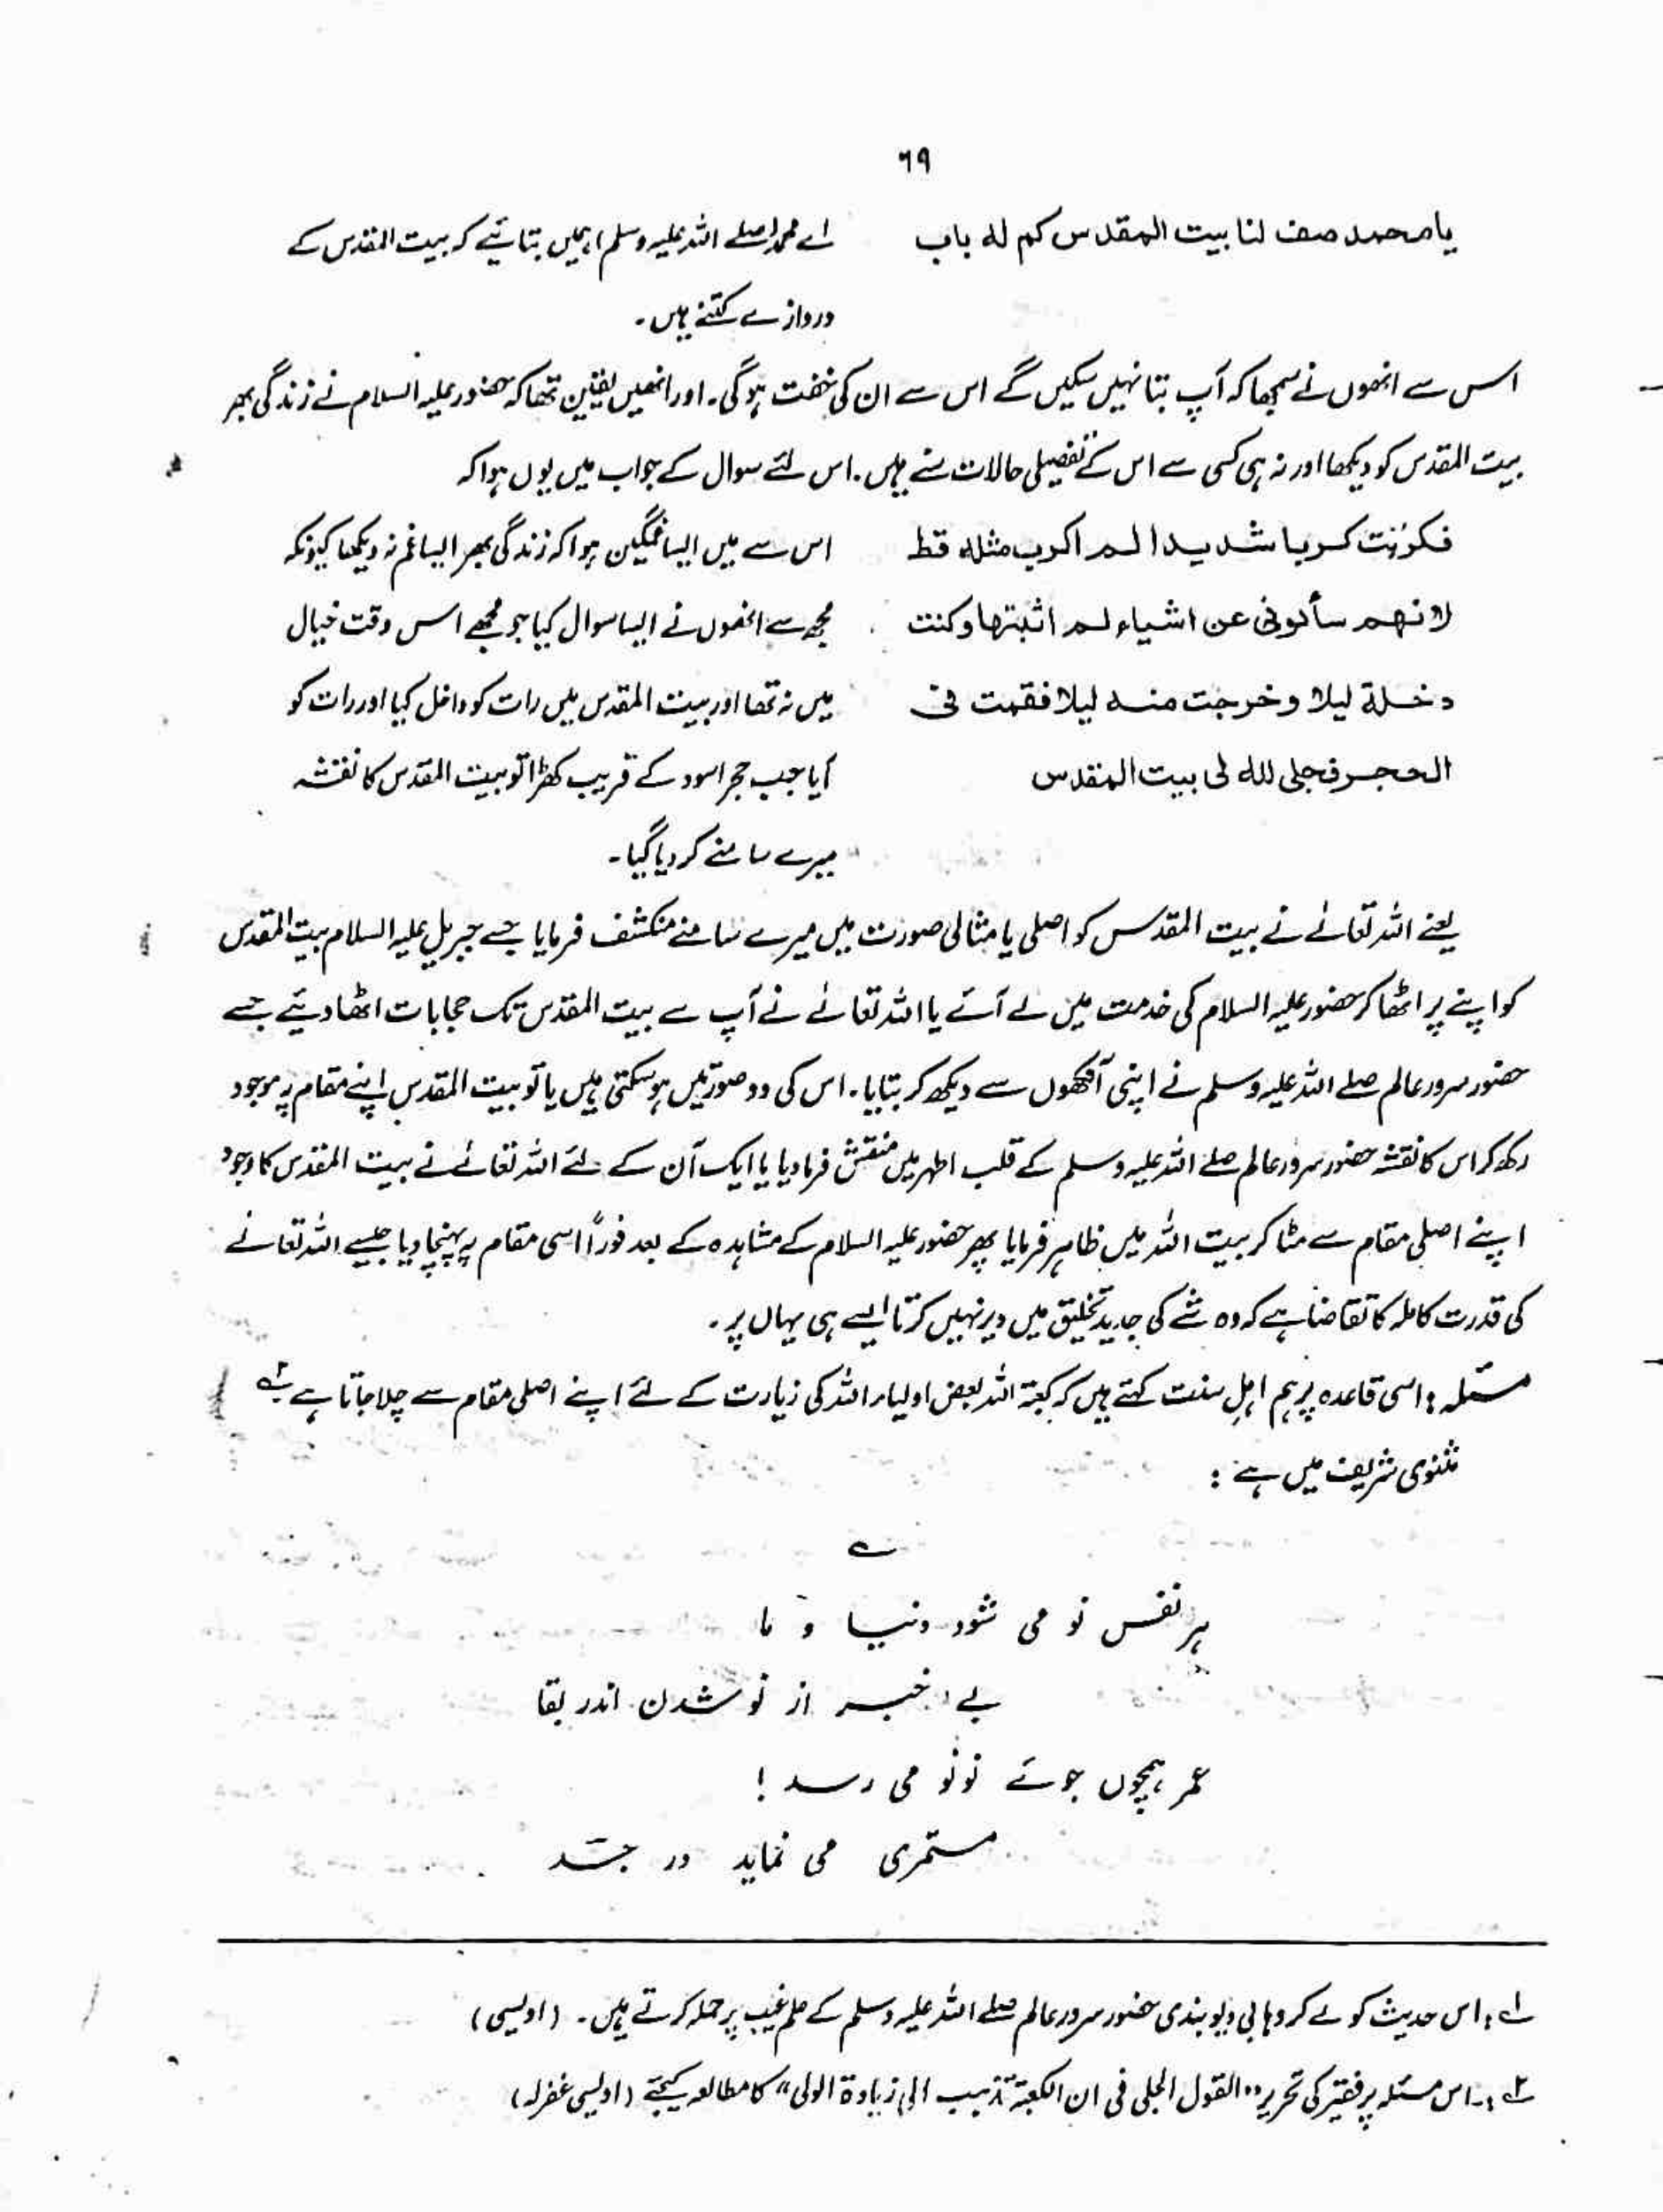 ٦٩
یا محمد صف لنا بیت المقدس کم لہ باب
اے محمد (صلے اللہ علیہ وسلم) ہمیں بتائیے کہ بیت المقدس کے
دروازے کتنے ہیں۔
اس سے انھوں نے سمجھا کہ آپ بتا نہیں سکیں گے اس سے ان کی خفت ہوگی۔ اور انھیں یقین تھا کہ حضور علیہ السلام نے زندگی بھر
بیت المقدس کو دیکھا اور نہ ہی کسی سے اس کے تفصیلی حالات سنے ہیں۔ اس لئے سوال کے جواب میں یوں ہوا کہ
فکرُبت کربا شدیدا لم اکرب مثلہ قط
لانھم سألونی عن اشیاء لم اثبتھا و کنت
دخلتہ لیلا و خرجت منہ لیلا فقمت فی
الحجر فجلی اللہ لی بیت المقدس
اس سے میں ایسا غمگین ہوا کہ زندگی بھر ایسا غم نہ دیکھا کیونکہ
مجھ سے انھوں نے ایسا سوال کیا جو مجھے اس وقت خیال
میں نہ تھا اور بیت المقدس میں رات کو داخل کیا اور رات کو
آیا جب حجر اسود کے قریب کھڑا تو بیت المقدس کا نقشہ
میرے سامنے کر دیا گیا۔
یعنے اللہ تعالےٰ نے بیت المقدس کو اصلی یا مثالی صورت میں میرے سامنے منکشف فرمایا جسے جبریل علیہ السلام بیت المقدس
کو اپنے پر اٹھا کر حضور علیہ السلام کی خدمت میں لے آئے یا اللہ تعالےٰ نے آپ سے بیت المقدس تک حجابات اٹھا دیئے جسے
حضور سرور عالم صلے اللہ علیہ وسلم نے اپنی آنکھوں سے دیکھ کر بتایا۔ اس کی دو صورتیں ہو سکتی ہیں یا تو بیت المقدس اپنے مقام پر موجود
رکھ کر اس کا نقشہ حضور سرور عالم صلے اللہ علیہ وسلم کے قلب اطہر میں منقش فرما دیا یا ایک آن کے لئے اللہ تعالےٰ نے بیت المقدس کا وجود
اپنے اصلی مقام سے مٹا کر بیت اللہ میں ظاہر فرمایا پھر حضور علیہ السلام کے مشاہدہ کے بعد فوراً اسی مقام پر پہنچا دیا جیسے اللہ تعالےٰ
کی قدرت کاملہ کا تقاضا ہے کہ وہ شے کی جدید تخلیق میں دیر نہیں کرتا ایسے ہی یہاں پر۔
مسئلہ: اسی قاعدہ پر ہم اہل سنت کہتے ہیں کہ کعبۃ اللہ بعض اولیاء اللہ کی زیارت کے لئے اپنے اصلی مقام سے چلا جاتا ہے ۲؎
مثنوی شریف میں ہے:
؎
ہر نفس نو می شود دنیا و ما
بے خبر از نو شدن اندر بقا
عمر ہمچوں جوئے نو نو می رسد!
مستمری می نماید در جسد
۱؎: اس حدیث کو لے کر وہابی دیوبندی حضور سرور عالم صلے اللہ علیہ وسلم کے علم غیب پر حملہ کرتے ہیں۔ (اویسی)
۲؎: اس مسئلہ پر فقیر کی تحریر "القول الجلی فی ان الکعبۃ تذہب الی زیارۃ الولی" کا مطالعہ کیجئے (اویسی غفرلہ)